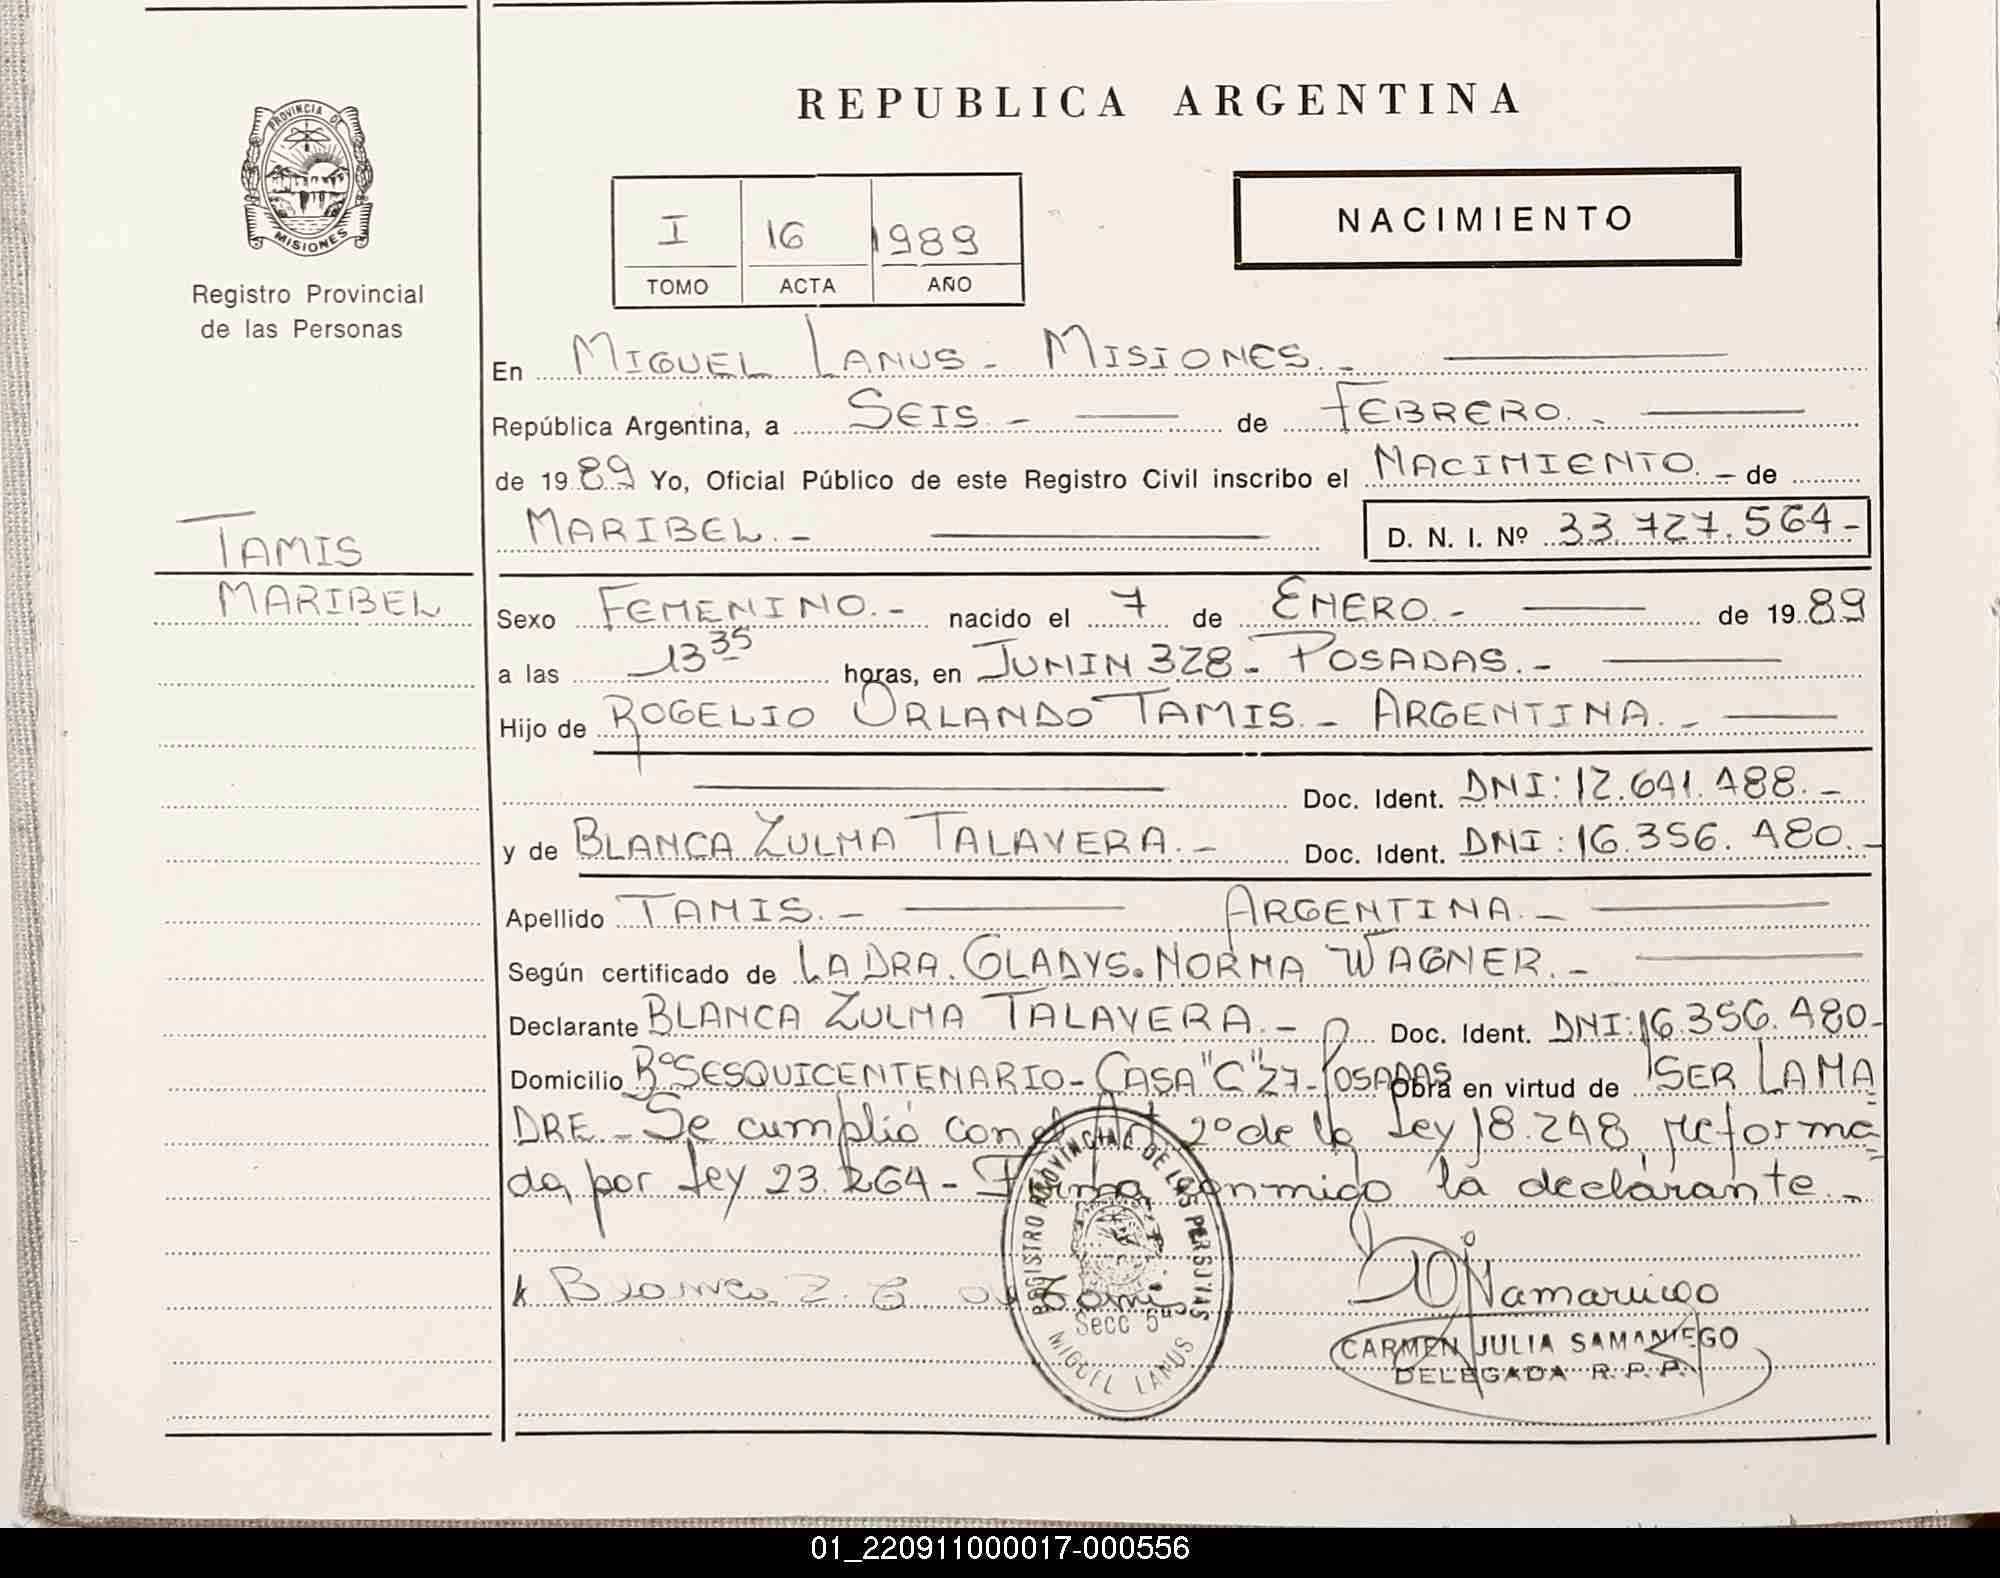 REPUBLICA ARGENTINA
PROVINCIA DE
MISIONES
Registro Provincial
de las Personas
I 16 1989
TOMO ACTA AÑO
NACIMIENTO
En MIGUEL LANUS - MISIONES.-
República Argentina, a SEIS.- de FEBRERO.-
de 1989 Yo, Oficial Público de este Registro Civil inscribo el NACIMIENTO.- de
MARIBEL.- D. N. I. Nº 33.727.564-
TAMIS
MARIBEL
Sexo FEMENINO.- nacido el 7 de ENERO.- de 1989
a las 13 35 horas, en JUNIN 328 - POSADAS.-
Hijo de ROGELIO ORLANDO TAMIS.- ARGENTINA.-
Doc. Ident. DNI: 12.641.488.-
y de BLANCA ZULMA TALAVERA.- Doc. Ident. DNI: 16.356.480.-
Apellido TAMIS.- ARGENTINA.-
Según certificado de LA DRA. GLADYS. NORMA WAGNER.-
Declarante BLANCA ZULMA TALAVERA.- Doc. Ident. DNI: 16.356.480-
Domicilio Bº SESQUICENTENARIO - CASA "C" 27 - POSADAS Obra en virtud de SER LA MA
DRE.- Se cumplió con el Art 2º de la Ley 18.248 reforma-
da por Ley 23.264 - Firma conmigo la declarante.-
Blanca Z.
REGISTRO PROVINCIAL DE LAS PERSONAS
Secc 5ª
MIGUEL LANUS
CARMEN JULIA SAMANIEGO
DELEGADA R.P.P.
01_220911000017-000556